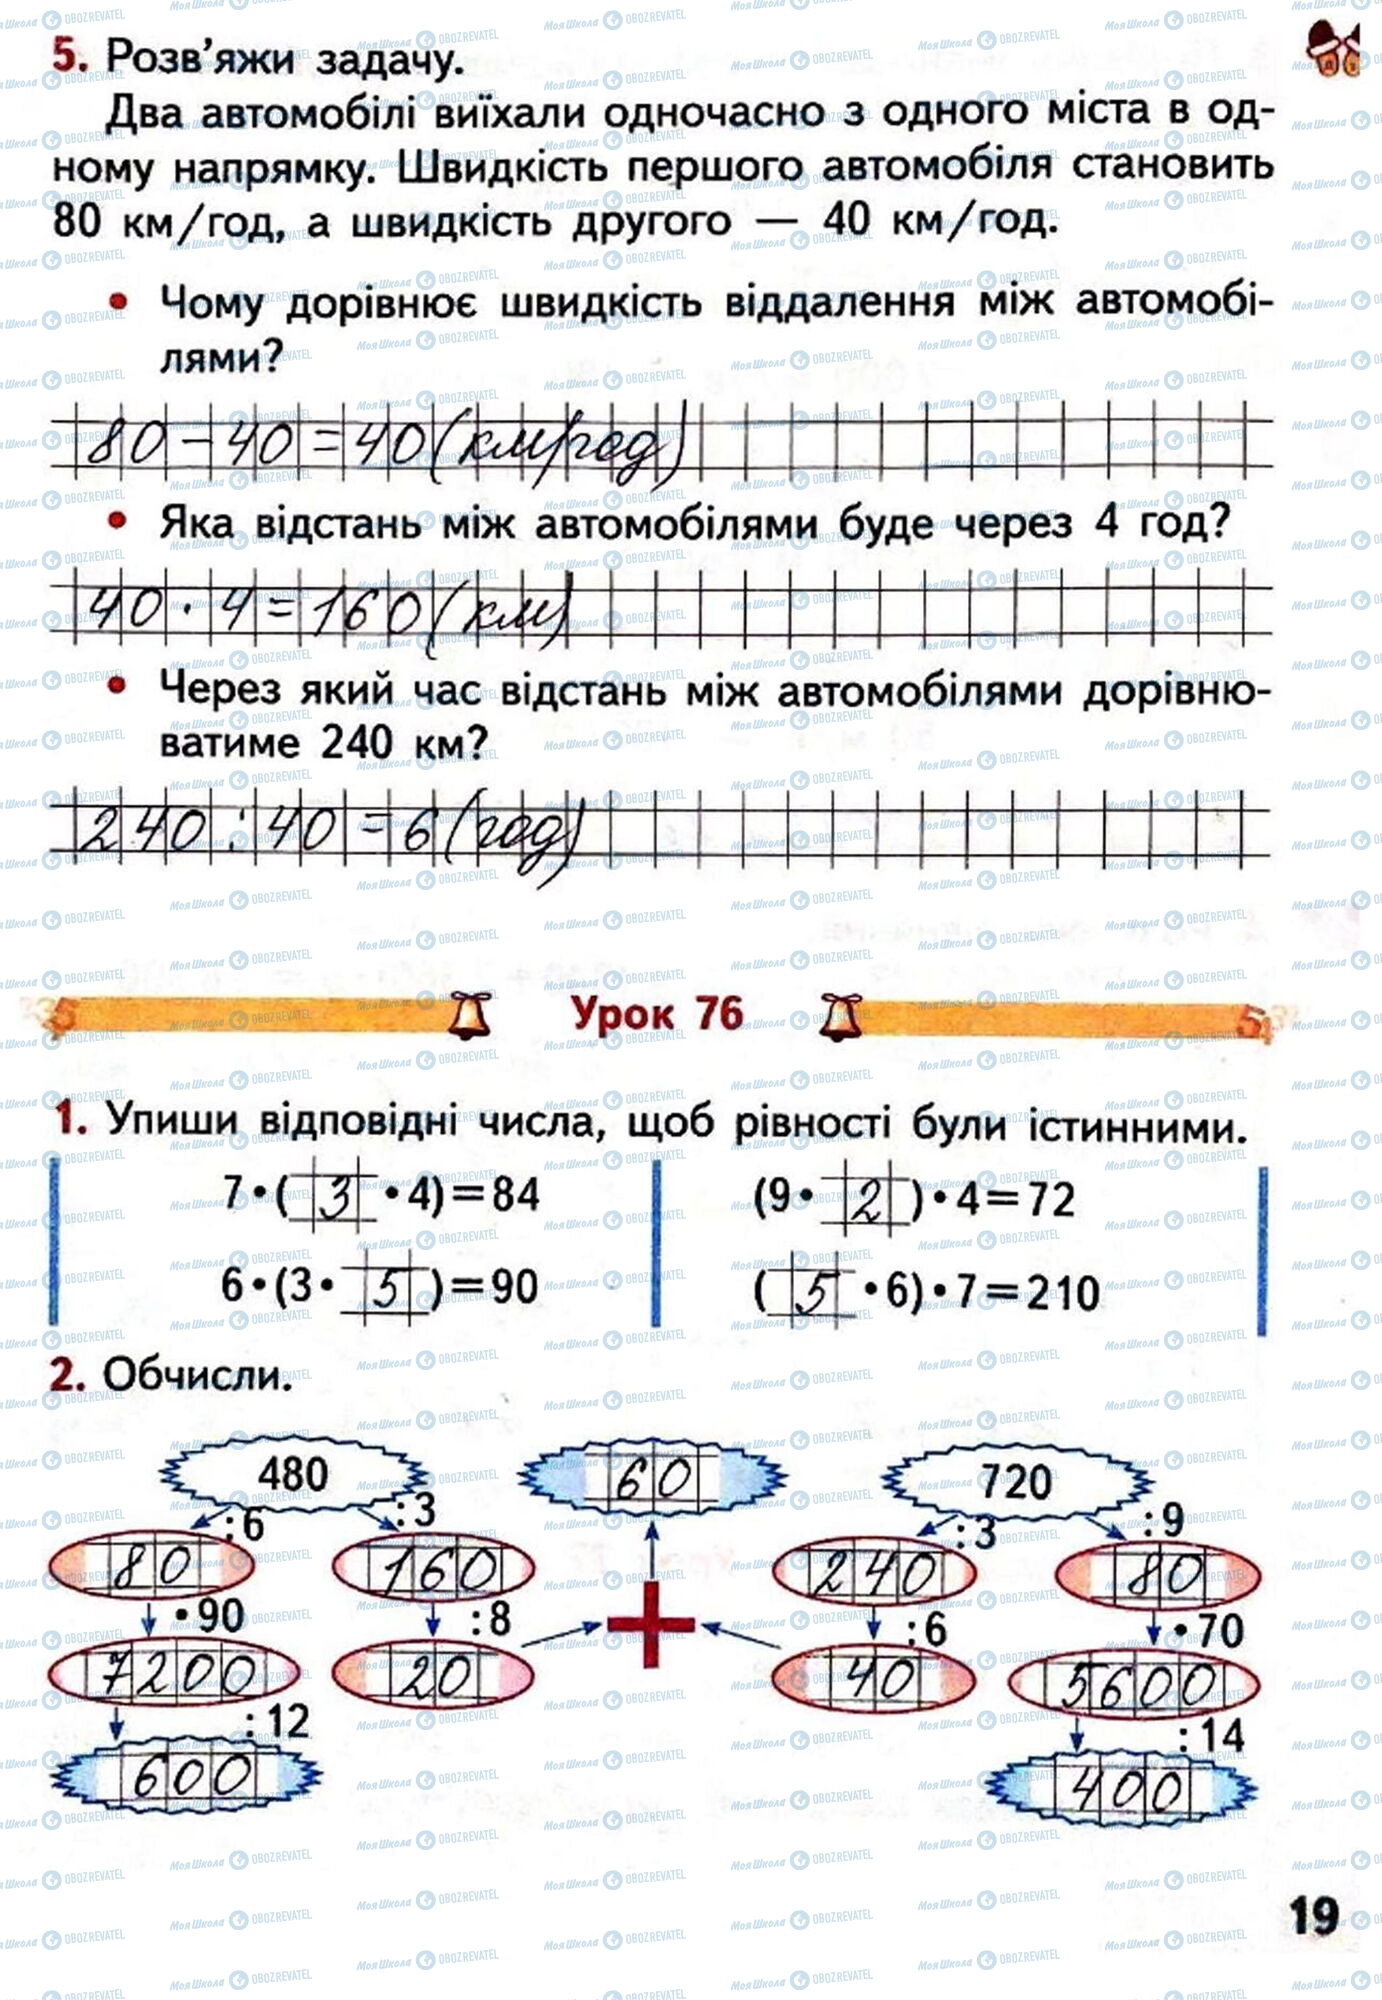 5. Розв’яжи задачу.
Два автомобілі виїхали одночасно з одного міста в од-
ному напрямку. Швидкість першого автомобіля становить
80 км/год, а швидкість другого — 40 км/год.
• Чому дорівнює швидкість віддалення між автомобі-
лями?
80 - 40 = 40 (км/год)
• Яка відстань між автомобілями буде через 4 год?
40 · 4 = 160 (км)
• Через який час відстань між автомобілями дорівню-
ватиме 240 км?
240 : 40 = 6 (год)
Урок 76
1. Упиши відповідні числа, щоб рівності були істинними.
7 • ( 3 • 4) = 84 (9 • 2 ) • 4 = 72
6 • (3 • 5 ) = 90 ( 5 • 6) • 7 = 210
2. Обчисли.
480 60 720
:6 :3 :3 :9
80 160 240 80
•90 :8 :6 •70
7200 20 + 40 5600
:12 :14
600 400
19
МояШкола OBOZREVATEL